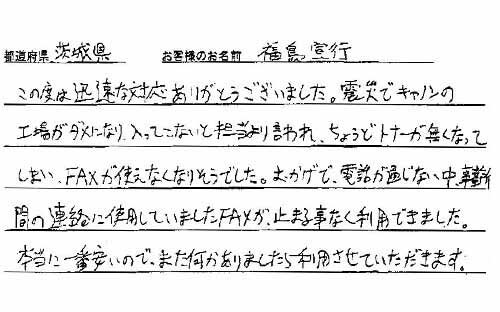 都道府県 茨城県 お客様のお名前 福島宣行
この度は迅速な対応ありがとうございました。震災でキャノンの
工場がダメになり、入ってこないと担当より言われ、ちょうどトナーが無くなって
しまい、FAXが使えなくなりそうでした。おかげで、電話が通じない中、事務所
間の連絡に使用していましたFAXが、止まる事なく利用できました。
本当に一番安いので、また何かありましたら利用させていただきます。